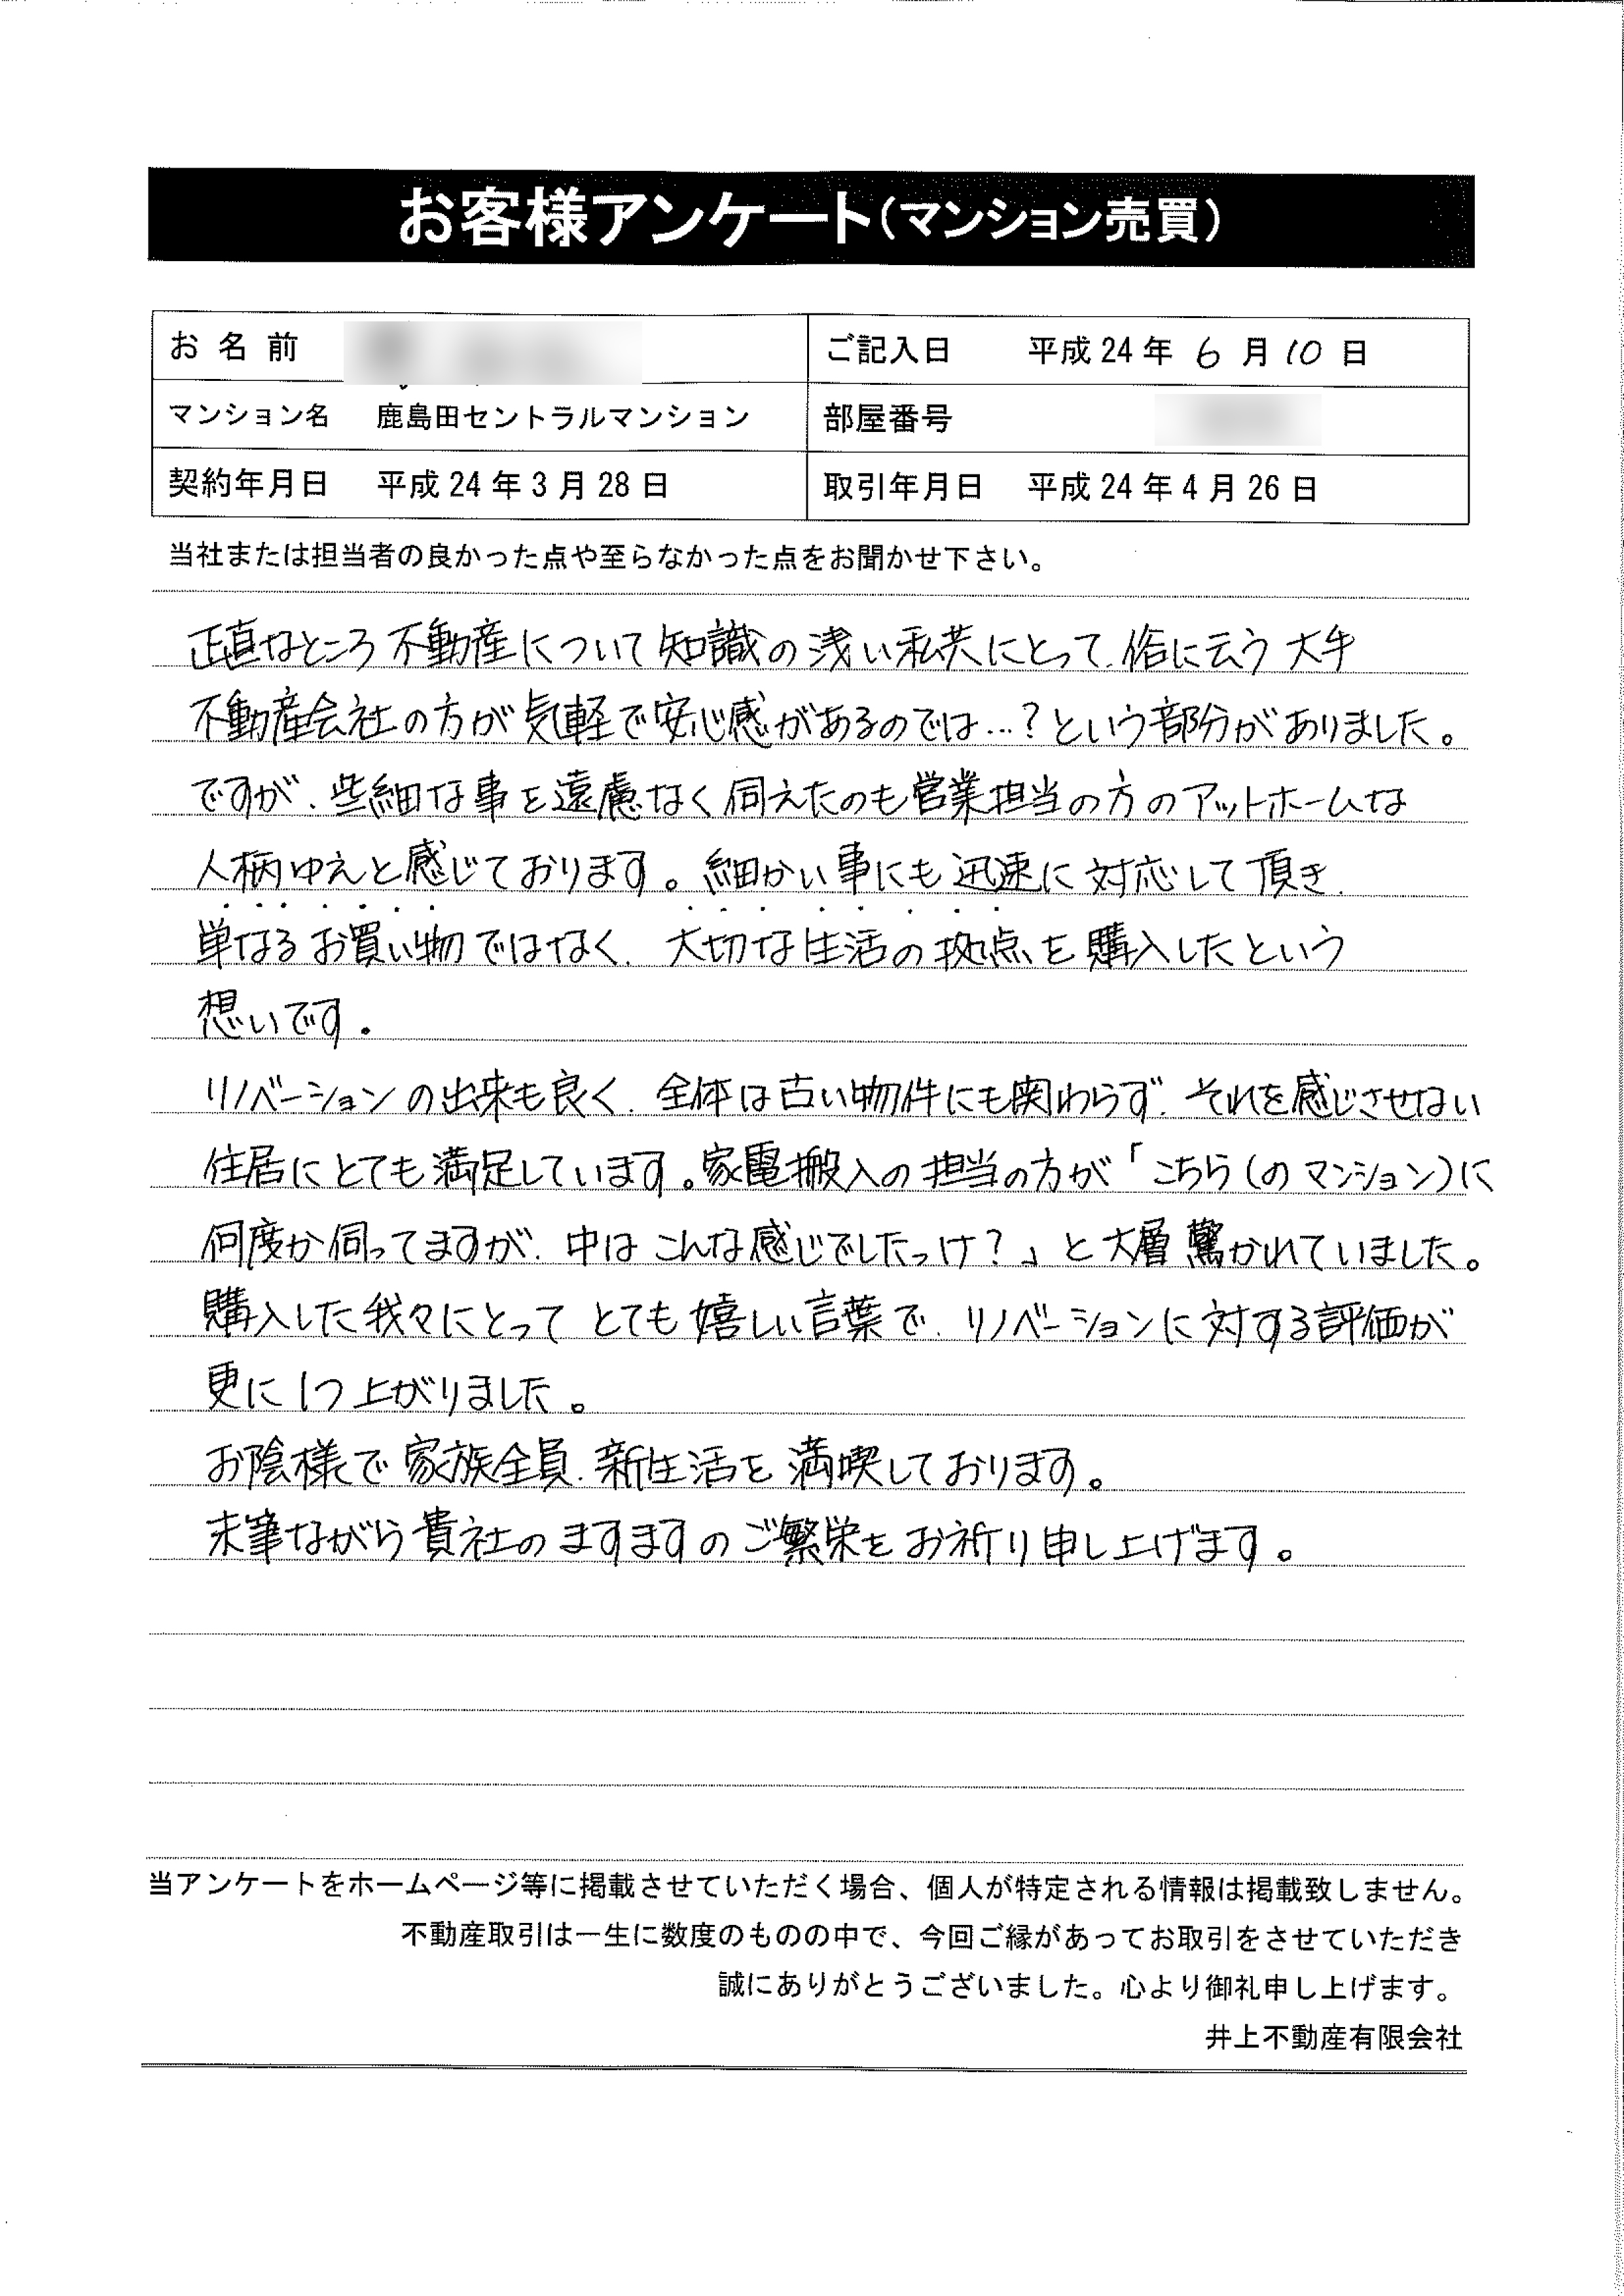 お客様アンケート(マンション売買)
お名前
ご記入日 平成24年6月10日
マンション名 鹿島田セントラルマンション
部屋番号
契約年月日 平成24年3月28日
取引年月日 平成24年4月26日
当社または担当者の良かった点や至らなかった点をお聞かせ下さい。
正直なところ不動産について知識の浅い私共にとって、俗に云う大手
不動産会社の方が気軽で安心感があるのでは…?という部分がありました。
ですが、些細な事を遠慮なく伺えたのも営業担当の方のアットホームな
人柄ゆえと感じております。細かい事にも迅速に対応して頂き、
単なるお買い物ではなく、大切な生活の拠点を購入したという
想いです.
リノベーションの出来も良く、全体は古い物件にも関わらず、それを感じさせない
住居にとても満足しています。家電搬入の担当の方が「こちら(のマンション)に
何度か伺ってますが、中はこんな感じでしたっけ?」と大層驚かれていました。
購入した我々にとってとても嬉しい言葉で、リノベーションに対する評価が
更に1つ上がりました。
お陰様で家族全員、新生活を満喫しております。
末筆ながら貴社のますますのご繁栄をお祈り申し上げます。
当アンケートをホームページ等に掲載させていただく場合、個人が特定される情報は掲載致しません。
不動産取引は一生に数度のものの中で、今回ご縁があってお取引をさせていただき
誠にありがとうございました。心より御礼申し上げます。
井上不動産有限会社